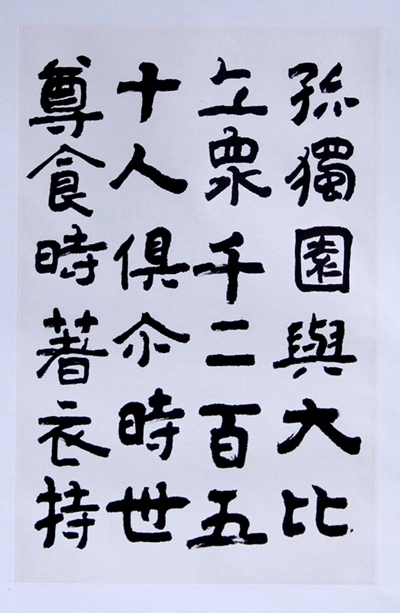 孤獨園與大比
丘衆千二百五
十人俱尒時世
尊食時著衣持